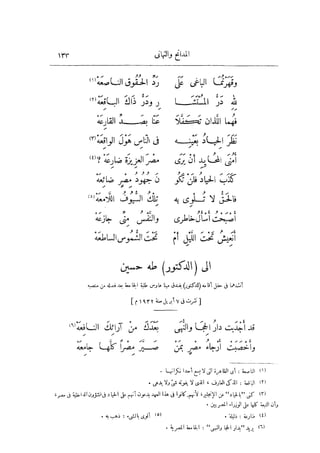 المدائح والتهانى ١٣٣
وقهرتما الباغى على ردّ الحقوق الناصعه (١)
لله درّ المستشا ر ودرّ ذاك البارقعه (٢)
فهما اللذان تكفّلا عنّا بصدّ القارعه
نظر الحياد بعينه فى الناس هول الواقعه (٣)
أمنى المحايد أن يرى مصر العزيزة ضارعه ؟ (٤)
كذب الحياد فلن تكو ن جهود مصر ضائعه
فالحق لا تلوى به تلك السيوف اللامعه (٥)
أصبحت أسأل خاطرى والنفس منّى جازعه
أنعيش تحت الليل أم تحت الشموس الساطعه
الى (الدكتور) طه حسين
أنشدهما فى حفل أقامه (للدكتور) بفندق مينا هاوس طلبة الجامعة بعد فصله من منصبه
[ نشرت فى ٧ أبريل سنة ١٩٣٢ م ]
قد أجدبت دار الحجا والنهى بعدك من آرائك النافعه (٦)
وأخصبت أرجاء مصر بمن صيّر مصرا كلّها جامعه
(١) الناصعة : أى الظاهرة التى لا تسع أحدا نكرانها .
(٢) الباقعة : الذكى العارف ، الذى لا يفوته شىء ولا يدهى .
(٣) كنى "بالحياد" عن الإنجليز ، لأنهم كانوا فى هذا العهد يدعون أنهم على الحياد فى الشئون الداخلية فى مصر ،
وأن التبعة كلها على الوزراء المصريين .
(٤) ضارعة : ذليلة . (٥) ألوى بالشىء : ذهب به .
(٦) يريد "بدار الحجا والنهى" : الجامعة المصرية .